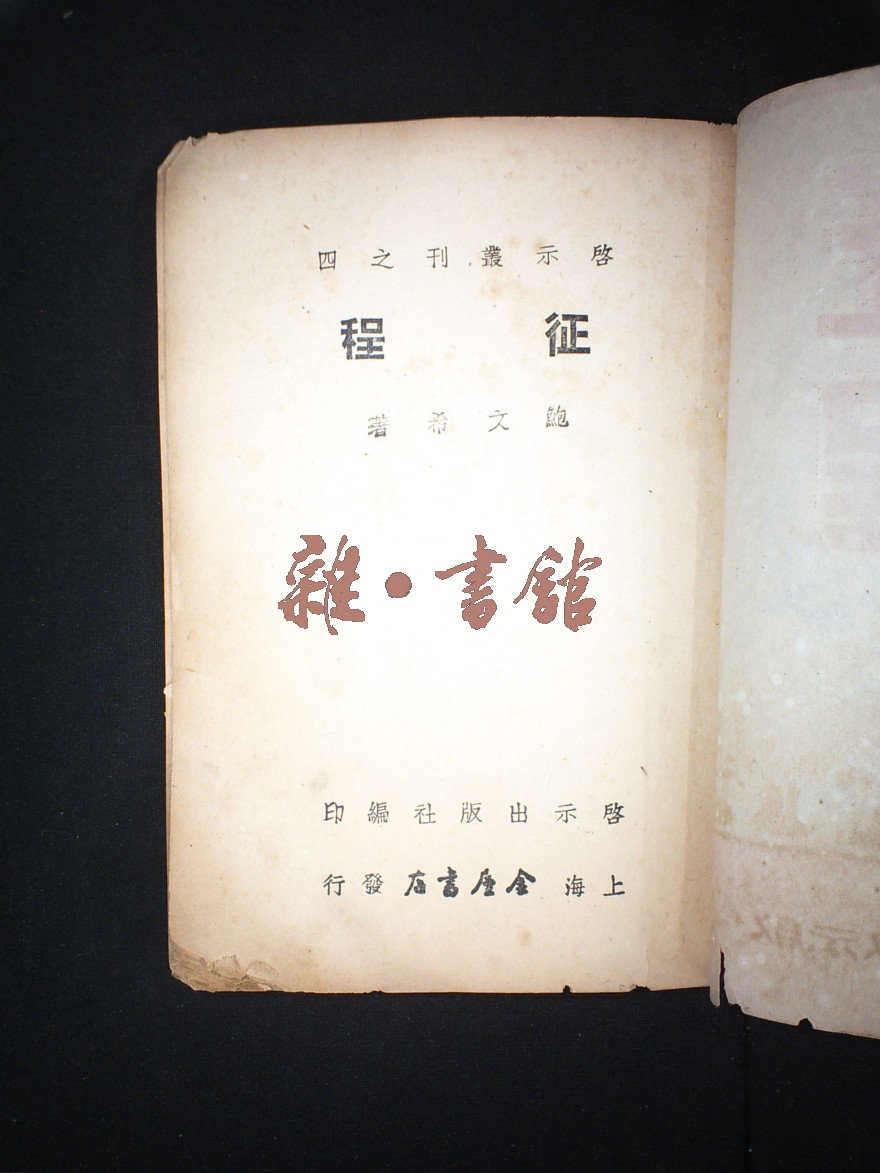 啓示叢刊之四
征程
鮑文希著
雜·書館
啓示出版社編印
上海金屋書店發行